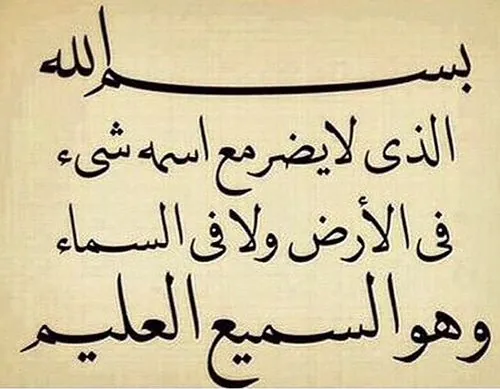 بسم الله
الذى لا يضر مع اسمه شىء
فى الأرض ولا فى السماء
وهو السميع العليم